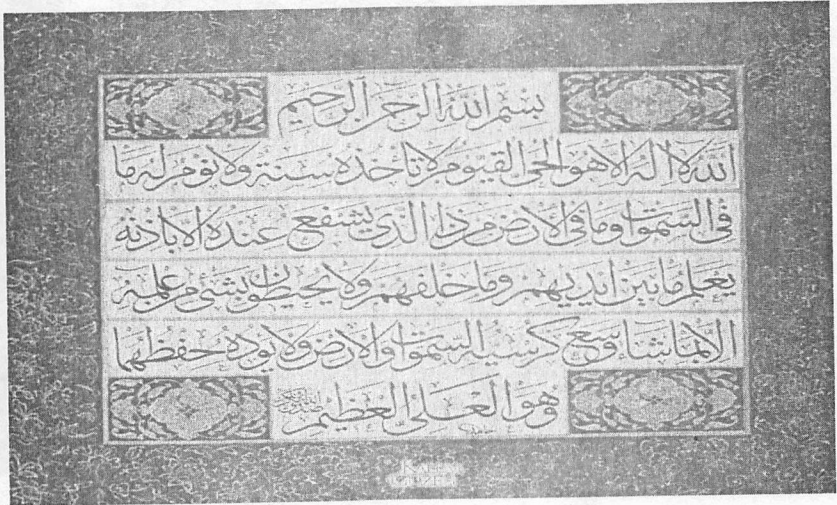 بسم الله الرحمن الرحيم
الله لا اله الا هو الحي القيوم لا تأخذه سنة ولا نوم له ما
في السموات وما في الارض من ذا الذي يشفع عنده الا باذنه
يعلم ما بين ايديهم وما خلفهم ولا يحيطون بشئ من علمه
الا بما شاء وسع كرسيه السموات والارض ولا يوده حفظهما
وهو العلي العظيم